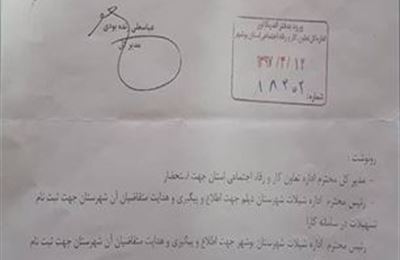 عباسعلی زنده بودی
مدیر کل
ورود به دفتر اندیکاتور
اداره کل تعاون، کار و رفاه اجتماعی استان بوشهر
۱۳۹۷/۴/۱۲
شماره:
رونوشت :
– مدیر کل محترم اداره تعاون کار و رفاه اجتماعی استان جهت استحضار
– رئیس محترم اداره شیلات شهرستان دیلم جهت اطلاع و پیگیری و هدایت متقاضیان آن شهرستان جهت ثبت نام
تسهیلات در سامانه کارا
رئیس محترم اداره شیلات شهرستان بوشهر جهت اطلاع و پیگیری و هدایت متقاضیان آن شهرستان جهت ثبت نام